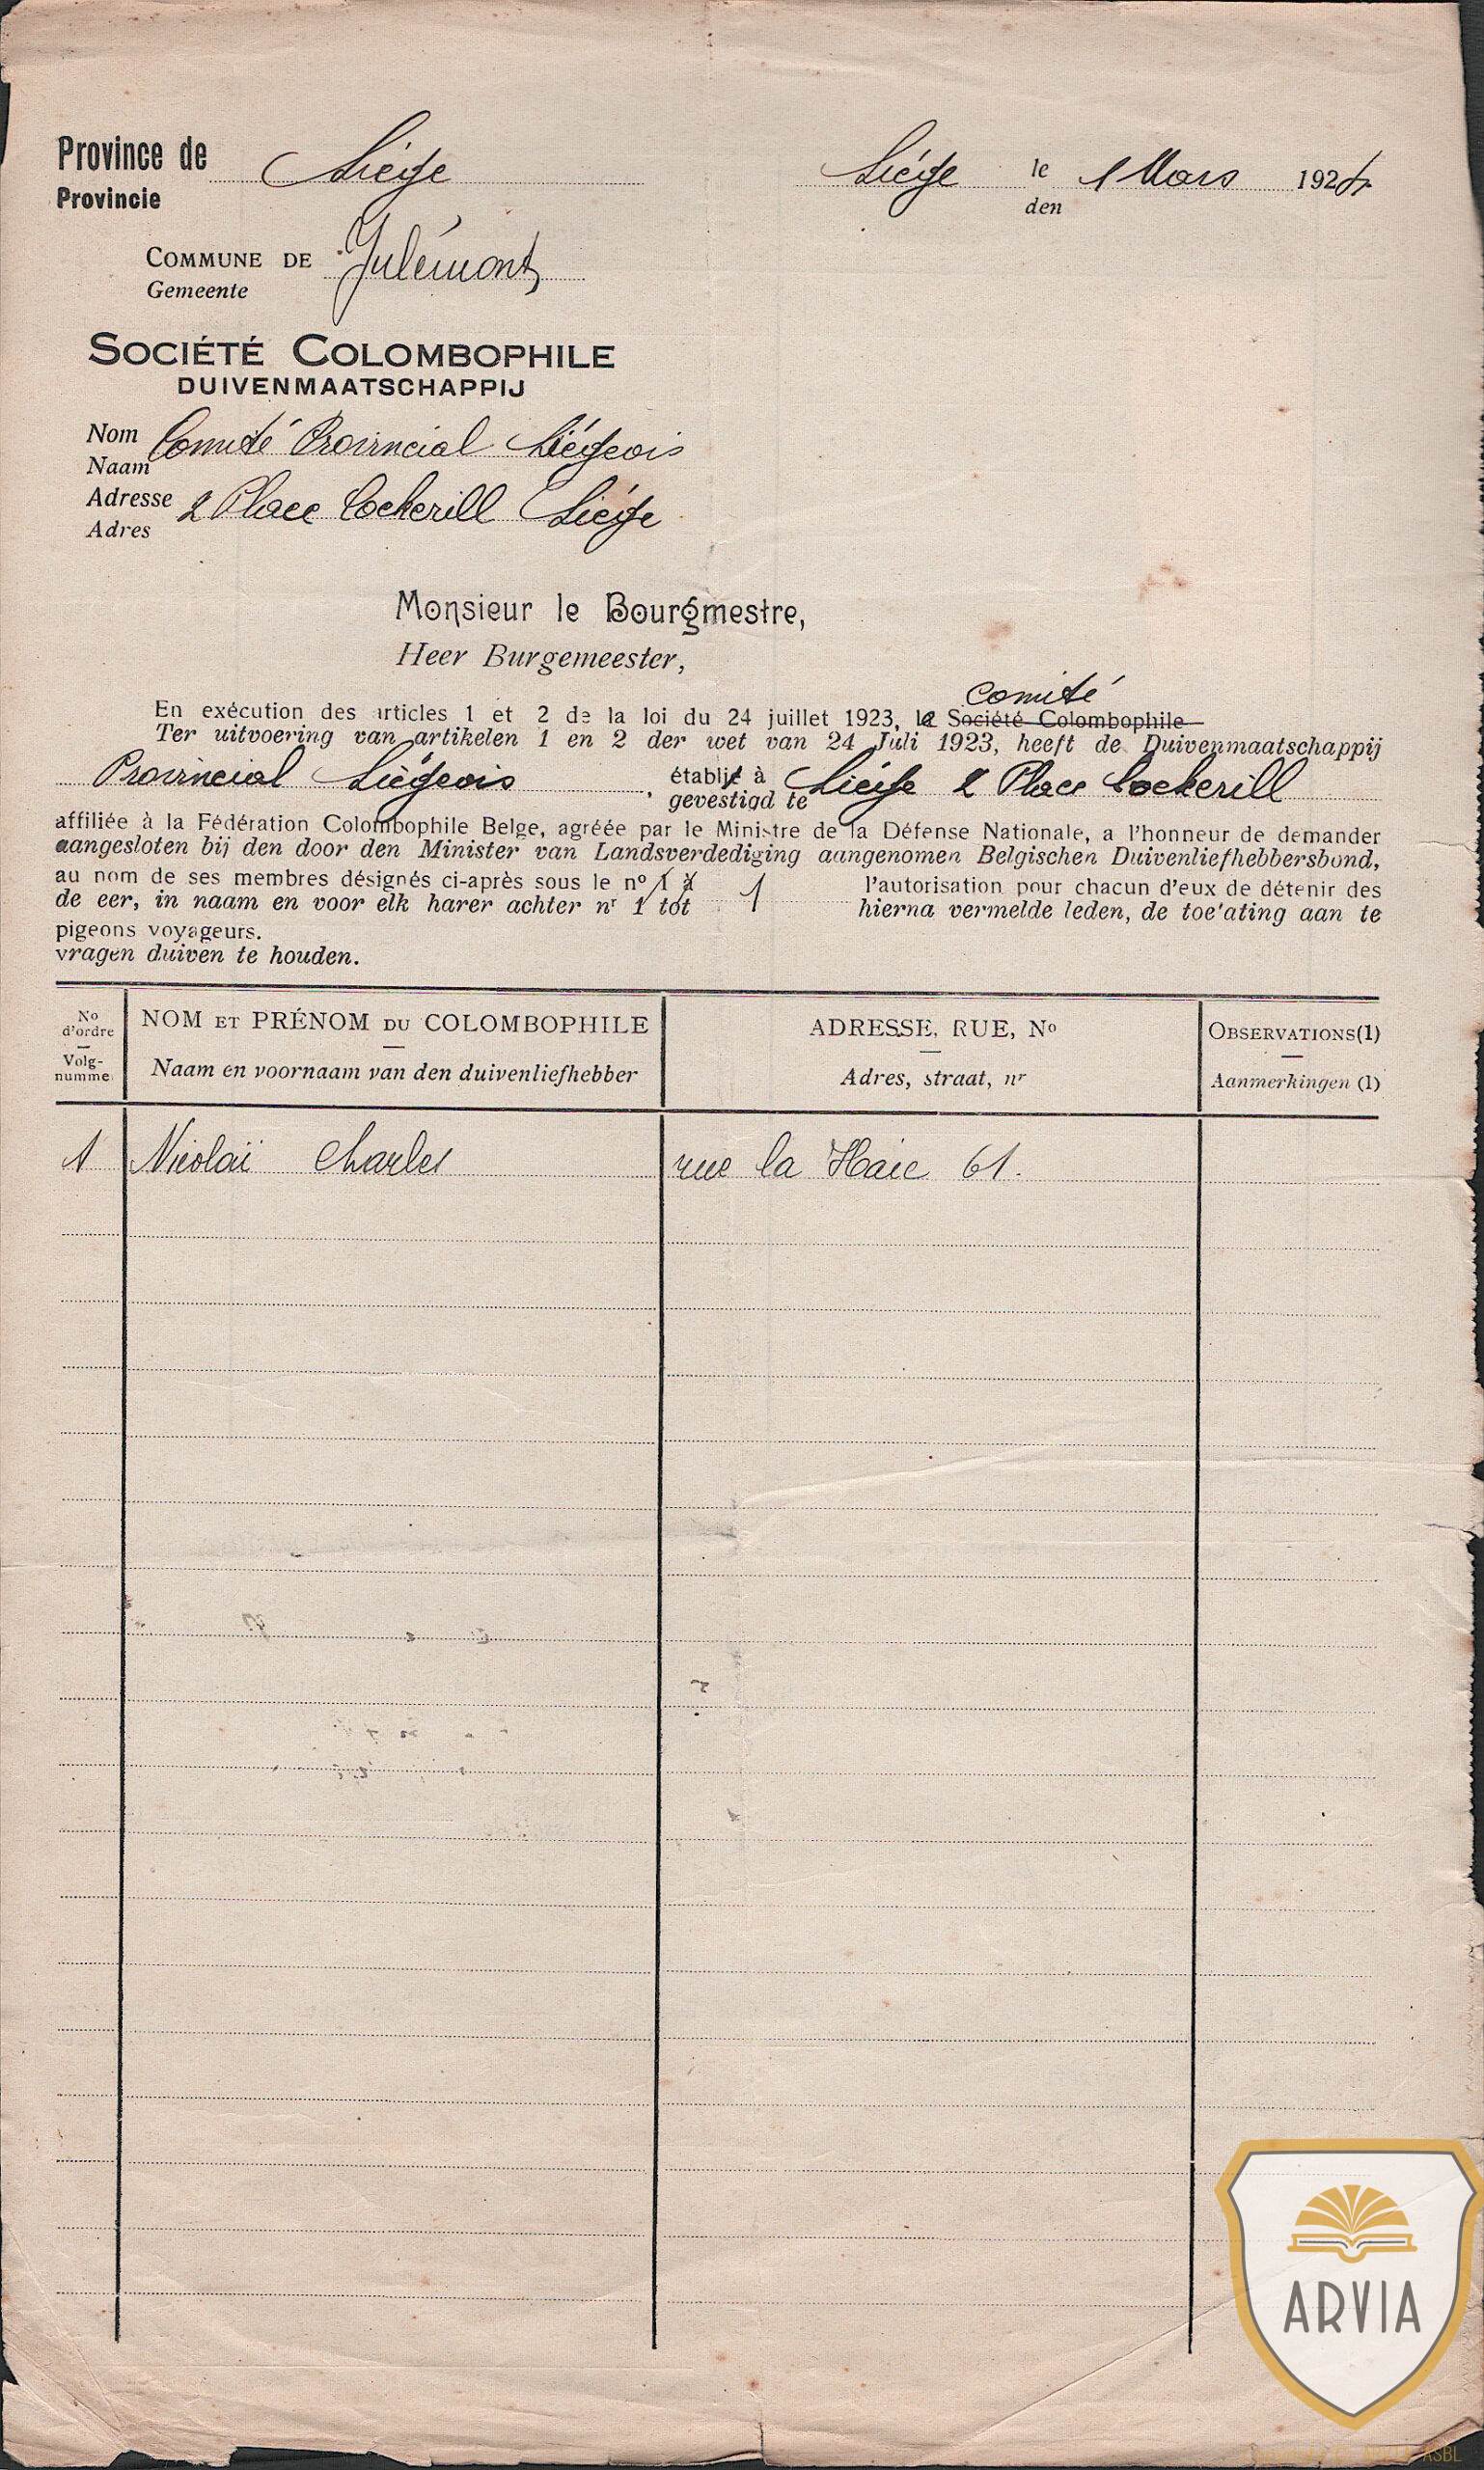 Province de Liége
Provincie
Liége le 1 Mars 1924
den
COMMUNE DE Julémont
Gemeente
SOCIÉTÉ COLOMBOPHILE
DUIVENMAATSCHAPPIJ
Nom Comité Provincial Liégeois
Naam
Adresse 2 Place Cockerill Liége
Adres
Monsieur le Bourgmestre,
Heer Burgemeester,
Comité
En exécution des articles 1 et 2 de la loi du 24 juillet 1923, le Société Colombophile
Ter uitvoering van artikelen 1 en 2 der wet van 24 Juli 1923, heeft de Duivenmaatschappij
Provincial Liégeois, établie à Liége 2 Place Cockerill
gevestigd te
affiliée à la Fédération Colombophile Belge, agréée par le Ministre de la Défense Nationale, a l'honneur de demander
aangesloten bij den door den Minister van Landsverdediging aangenomen Belgischen Duivenliefhebbersbond,
au nom de ses membres désignés ci-après sous le nº 1 à 1 l'autorisation pour chacun d'eux de détenir des
de eer, in naam en voor elk harer achter nr 1 tot hierna vermelde leden, de toe'ating aan te
pigeons voyageurs.
vragen duiven te houden.
No d'ordre NOM ET PRÉNOM DU COLOMBOPHILE ADRESSE, RUE, No OBSERVATIONS(1)
Volg-numme Naam en voornaam van den duivenliefhebber Adres, straat, nr Aanmerkingen (1)
1 Nicolaï Charles rue la Haie 61.
ARVIA